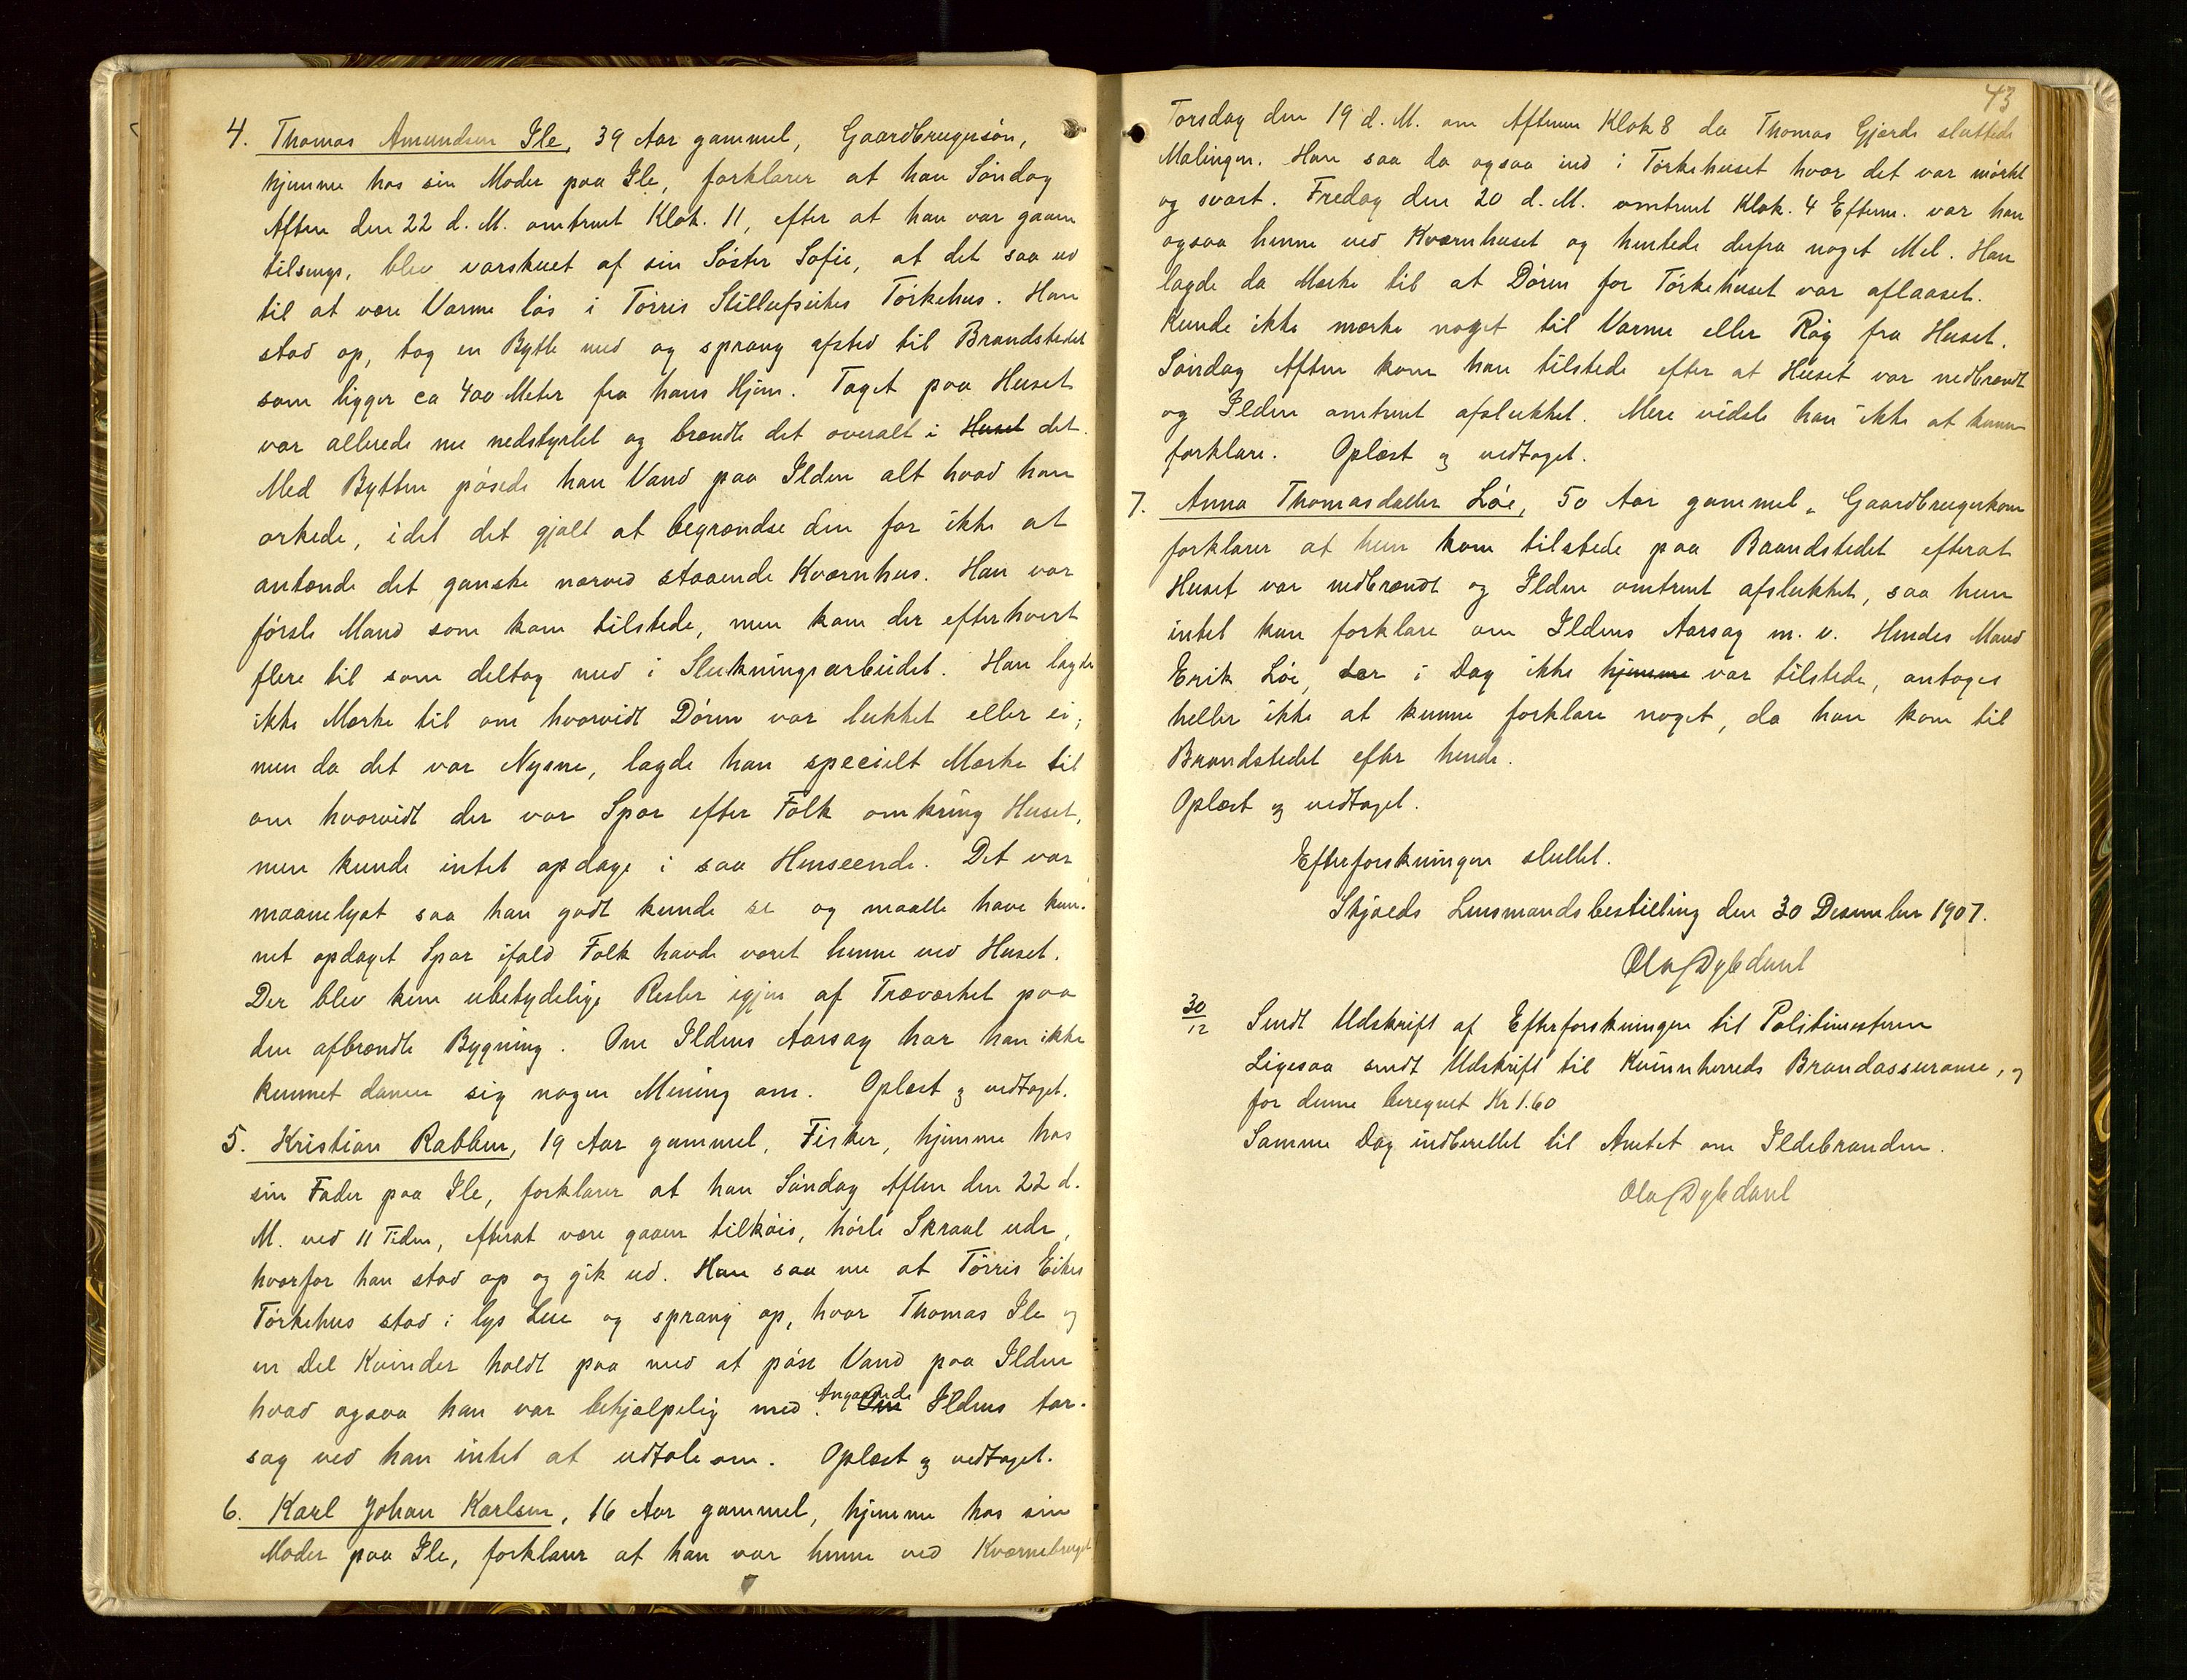 4. Thomas Amundsen Ile, 39 Aar gammel, Gaardbrugersön,
hjemme hos sin Moder paa Ile, forklarer at han Söndag
Aften den 22 d. M. omtrent Klok. 11, efter at han var gaaen
tilsengs, blev varskuet af sin Söster Sofie, at det saa ud
til at være Varme lös i Törris Törkehus. Han
stod op, tog en Bytte med og sprang afsted til Brandstedet
som ligger ca 400 Meter fra hans Hjem. Taget paa Huset
var allerede nu nedstyrtet og brændte det overalt i Huset det.
Med Bytten pösede han Vand paa Ilden alt hvad han
orkede, idet det gjalt at begrændse den for ikke at
antænde det ganske nærved staaende Kværnhus. Han var
förste Mand som kom tilstede, men kom der efterhvert
flere til som deltog med i Slukningsarbeidet. Han lagde
ikke Mærke til om hvorvidt Dören var lukket eller ei;
men da det var Nysne, lagde han specielt Mærke til
om hvorvidt der var Spor efter Folk omkring Huset,
men kunde intet opdage i saa Henseende. Det var
maanelyst saa han godt kunde se og maatte have kun-
net opdaget Spor ifald Folk havde været henne ved Huset.
Der blev kun ubetydelige Rester igjen af Træværket paa
den afbrændte Bygning. Om Ildens Aarsag har han ikke
kunnet danne sig nogen Mening om. Oplæst og vedtaget.
5. Kristian Rabben, 19 Aar gammel, Fisker, hjemme hos
sin Fader paa Ile, forklarer at han Söndag Aften den 22 d.
M. ved 11 Tiden, efterat være gaaen tilköis, hörte Skraal ude,
hvorfor han stod op og gik ud. Han saa nu at Törris Eikes
Törkehus stod i lys Lue og sprang op, hvor Thomas Ile og
en Del Kvinder holdt paa med at pöse Vand paa Ilden
hvad ogsaa han var behjælpelig med. Angaaende Om Ildens Aar-
sag ved han intet at udtale om. Oplæst og vedtaget.
6. Karl Johan Karlsen, 16 Aar gammel, hjemme hos sin
Moder paa Ile, forklarer at han var henne ved Kværnebruget
43
Torsdag den 19 d. M. om Aftenen Klok 8 da Thomas Gjerde sluttede
Malingen. Han saa da ogsaa ind i Törkehuset hvor det var mörkt
og svart. Fredag den 20 d. M. omtrent Klok. 4 Efterm. var han
ogsaa henne ved Kværnhuset og hentede derfra noget Mel. Han
lagde da Mærke til at Dören for Törkehuset var aflaaset.
Kunde ikke mærke noget til Varme eller Rög fra Huset.
Söndag Aften kom han tilstede efter at Huset var nedbrændt
og Ilden omtrent afslukket. Mere vidste han ikke at kunne
forklare. Oplæst og vedtaget.
7. Anna Thomasdatter Löe, 50 Aar gammel, Gaardbrugerkone
forklarer at hun kom tilstede paa Baandstedet efterat
Huset var nedbrændt og Ilden omtrent afslukket, saa hun
intet kan forklare om Ildens Aarsag m. v. Hendes Mand
Erik Löe, der i Dag ikke hjemme var tilstede, antages
heller ikke at kunne forklare noget, da han kom til
Brandstedet efter hende.
Oplæst og vedtaget.
Efterforskningen sluttet.
Skjolds Lensmandsbestilling den 30 Desember 1907.
30/12 Sendt Udskrift af Efterforskningen til Politimesteren
Ligesaa sendt Udskrift til Kvinnherreds Brandassurance, og
for denne beregnet Kr 1.60
Samme Dag indberettet til Amtet om Ildebranden.